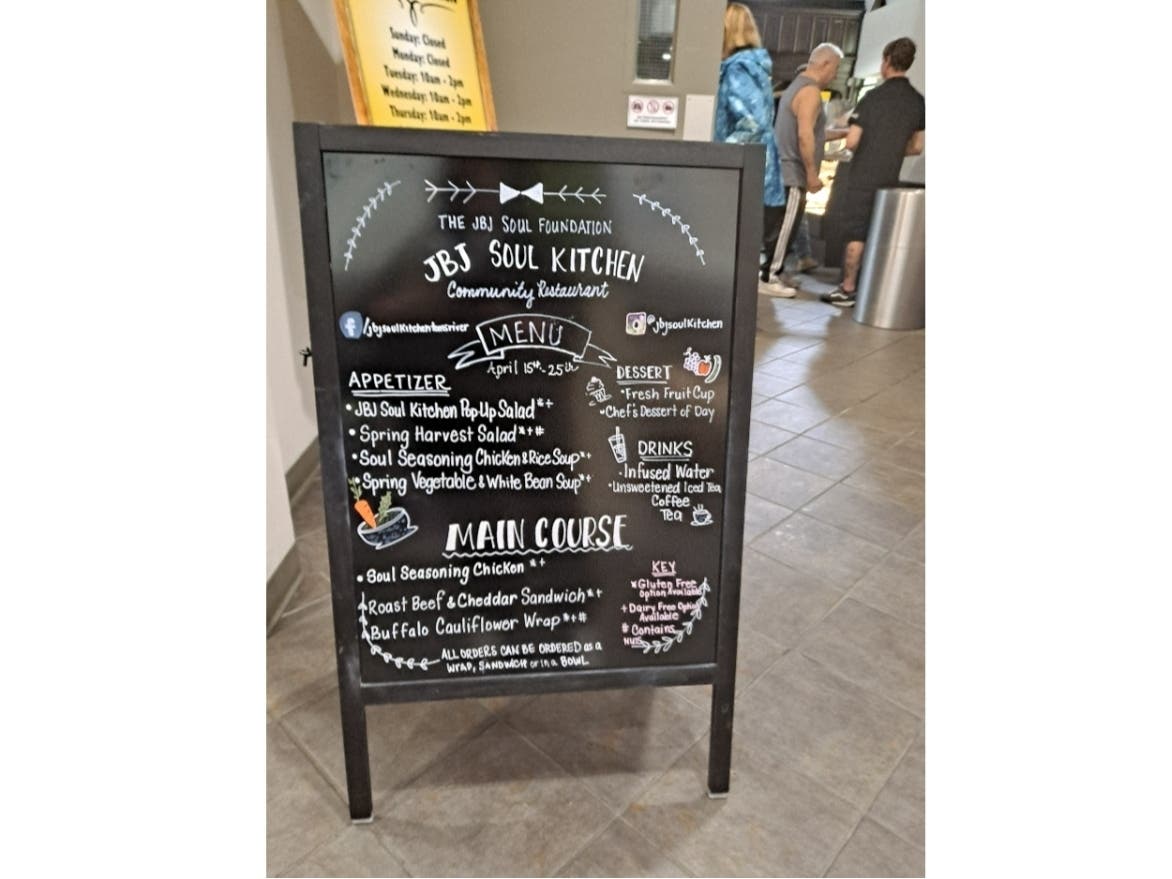 Sunday: Closed
Monday: Closed
Tuesday: 10am - 2pm
Wednesday: 10am - 2pm
Thursday: 10am - 2pm
THE JBJ SOUL FOUNDATION
JBJ SOUL KITCHEN
Community Restaurant
@jbjsoulkitchen
MENU
April 15th - 25th
APPETIZER
• JBJ Soul Kitchen Pop-Up Salad*+
• Spring Harvest Salad*+#
• Soul Seasoning Chicken & Rice Soup*+
• Spring Vegetable & White Bean Soup*+
DESSERT
• Fresh Fruit Cup
• Chef's Dessert of Day
DRINKS
• Infused Water
• Unsweetened Iced Tea
Coffee
Tea
MAIN COURSE
• Soul Seasoning Chicken *+
Roast Beef & Cheddar Sandwich*+
Buffalo Cauliflower Wrap*+#
ALL ORDERS CAN BE ORDERED as a
WRAP, SANDWICH or in a BOWL
KEY
* Gluten Free
Option Available
+ Dairy Free Option
Available
# Contains
NUTS